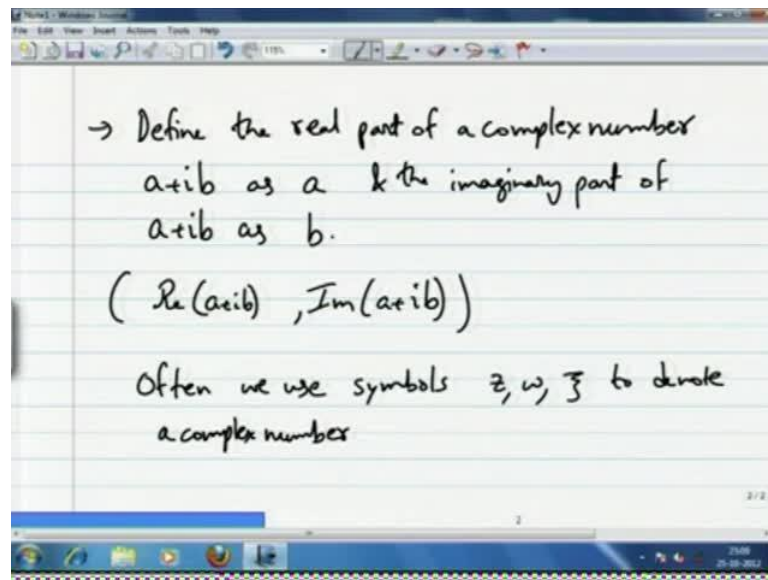 Note1 - Windows Journal
File Edit View Insert Actions Tools Help
115%
→ Define the real part of a complex number
a+ib as a & the imaginary part of
a+ib as b.
( Re(a+ib) , Im(a+ib) )
Often we use symbols z, w, ξ to denote
a complex number
2/2
2
25-10-2012